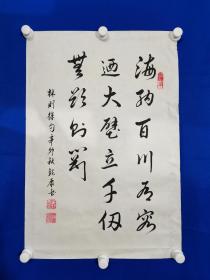 海納百川有容
迺大壁立千仞
無欲則剛
林則徐句辛卯秋